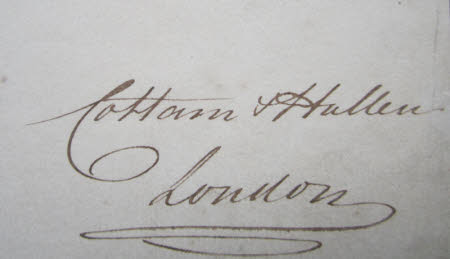 Cottam & Hallen
London